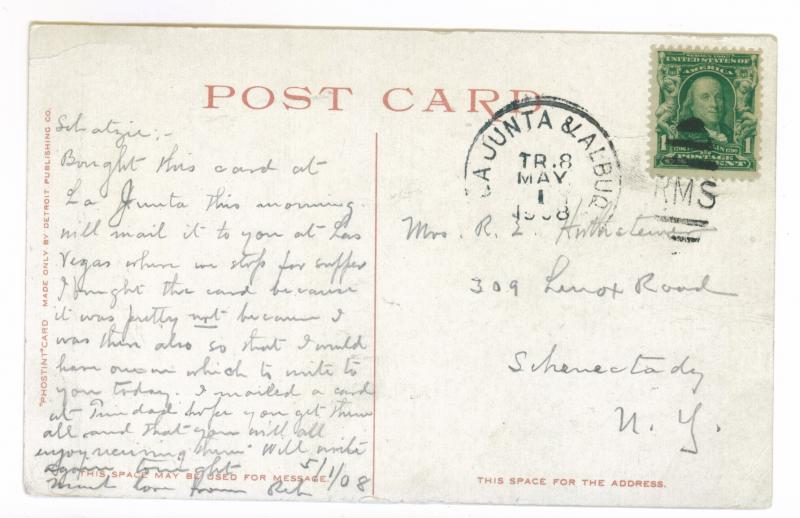 POST CARD
UNITED STATES OF
AMERICA
1
1
POSTAGE
LA JUNTA & ALBUQ
TR.8
MAY
1
1908
RMS
"PHOSTINT" CARD MADE ONLY BY DETROIT PUBLISHING CO.
Schatzie:-
Bought this card at
La Junta this morning.
will mail it to you at Las
Vegas where we stop for supper
I bought the card because
it was pretty not because I
was there also so that I would
have one on which to write to
you today. I mailed a card
at Trinidad hope you get them
all and that you will all
enjoy receiving them. Will write
again tonight 5/1/08
much love from
THIS SPACE MAY BE USED FOR MESSAGE.
Mrs. R. E.
309 Lenox Road
Schenectady
N. Y.
THIS SPACE FOR THE ADDRESS.